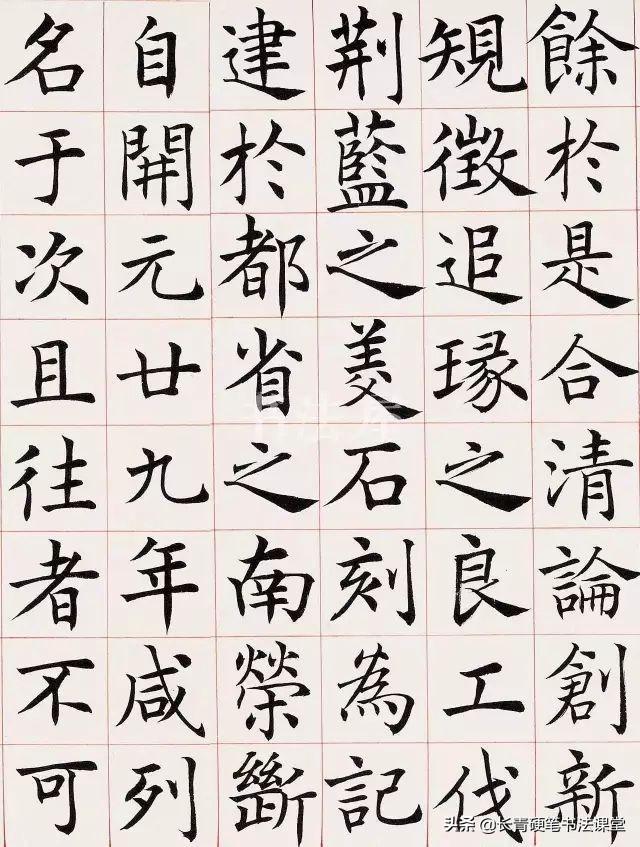 餘於是合清論創新
規徵追琢之良工伐
荆藍之美石刻為記
建於都省之南榮斷
自開元廿九年咸列
名于次且往者不可
书法库
头条 @长青硬笔书法课堂